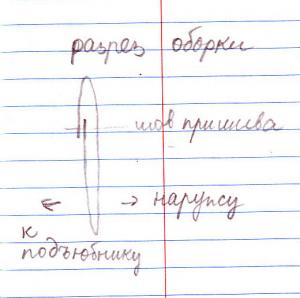 разрез оборки
шов пришива
← → наружу
к
подъюбнику